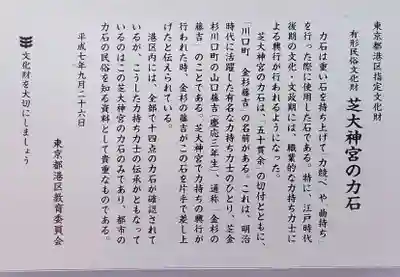 東京都港区指定文化財
有形民俗文化財 芝大神宮の力石
力石は重い石を持ち上げて、力競べや、曲持ち
を行った際に使用した石である。特に、江戸時代
後期の文化・文政期には、職業的な力持ち力士に
よる興行が行われるようになった。
芝大神宮の力石は、五十貫余の切付とともに、
「川口町 金杉藤吉」の名前がある。これは、明治
時代に活躍した有名な力持ち力士のひとり、芝金
杉川口町の山口藤吉(慶応三年生)、通称「金杉の
藤吉」のことである。芝大神宮で力持ちの興行が
行われた時、金杉の藤吉がこの石を片手で差し上
げたと伝えられている。
港区内には、全部で十四点の力石が確認されて
いるが、こうした力持ち力士の伝承がともなって
いるのはこの芝大神宮の力石のみであり、都市の
力石の民俗を知る資料として貴重なものである。
平成七年九月二十六日
東京都港区教育委員会
文化財を大切にしましょう